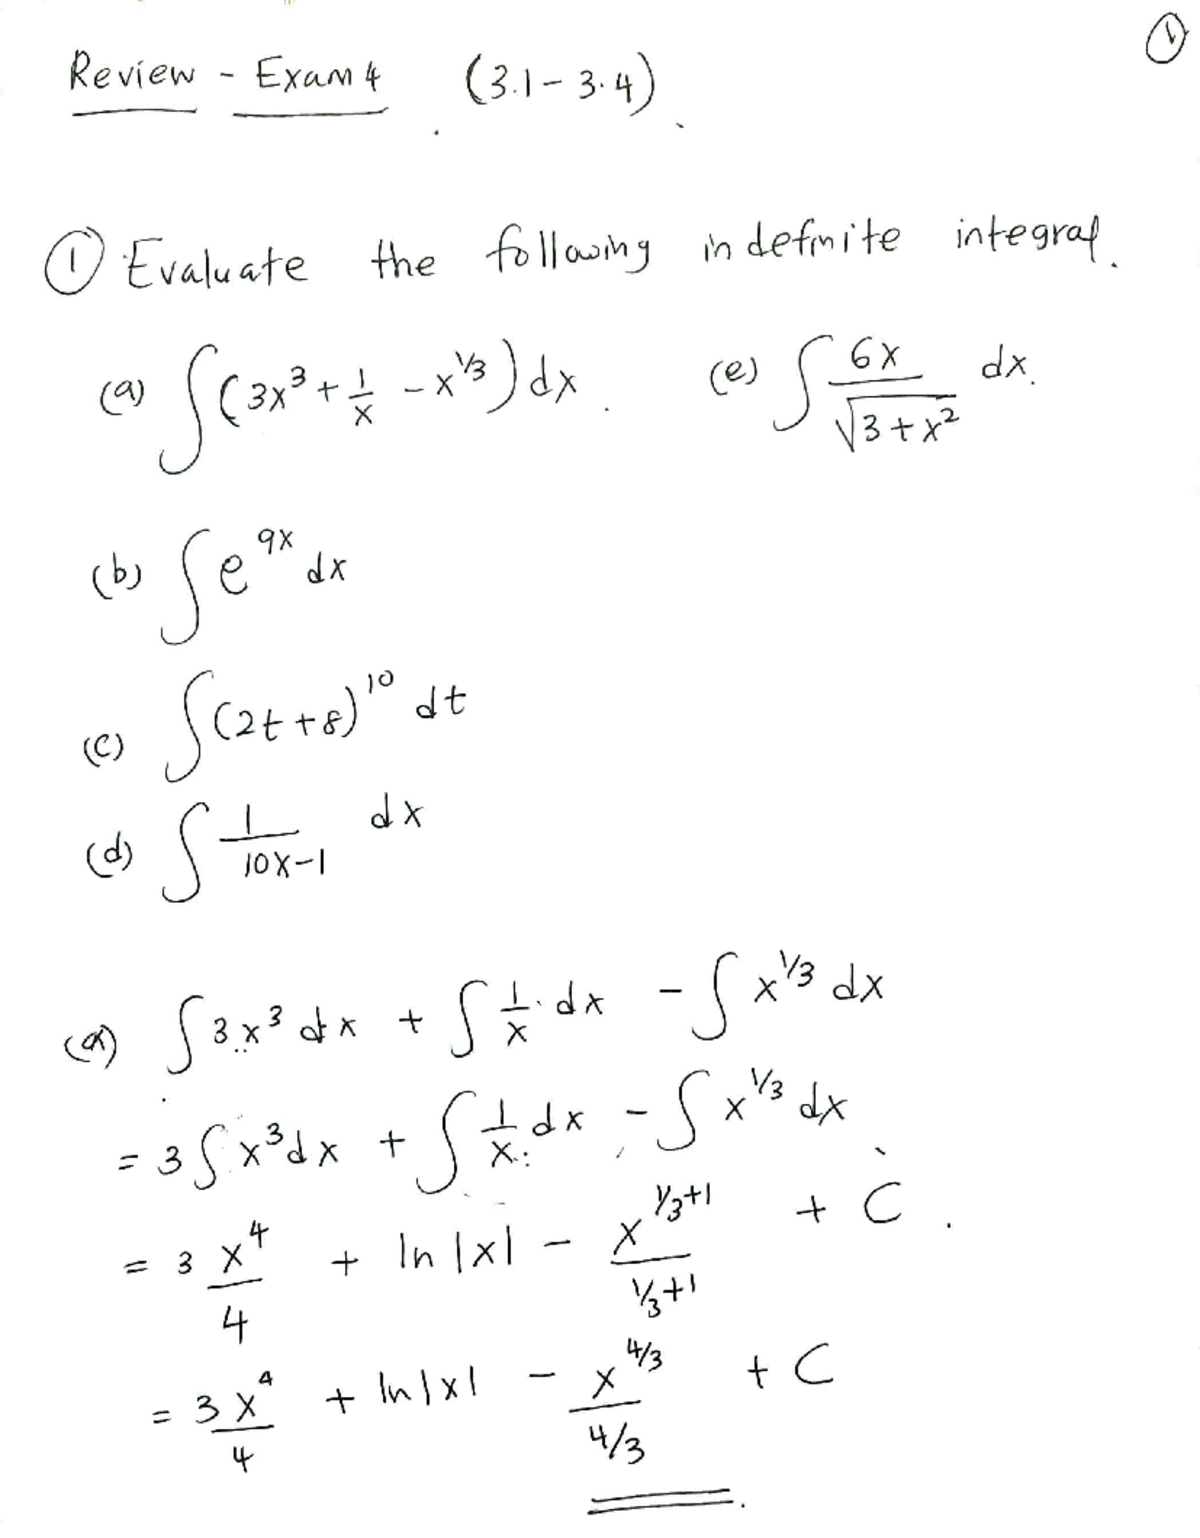 ①
Review - Exam 4 (3.1 - 3.4)
① Evaluate the following indefinite integral.
(a) ∫(3x³ + 1/x - x^(1/3)) dx. (e) ∫ 6x/√(3+x²) dx.
(b) ∫ e^(9x) dx
(c) ∫(2t+8)^10 dt
(d) ∫ 1/(10x-1) dx
(a) ∫3x³ dx + ∫ 1/x · dx - ∫ x^(1/3) dx
= 3∫x³dx + ∫ 1/x dx - ∫ x^(1/3) dx
= 3 x⁴/4 + ln|x| - x^(1/3+1)/(1/3+1) + C.
= 3x⁴/4 + ln|x| - x^(4/3)/(4/3) + C